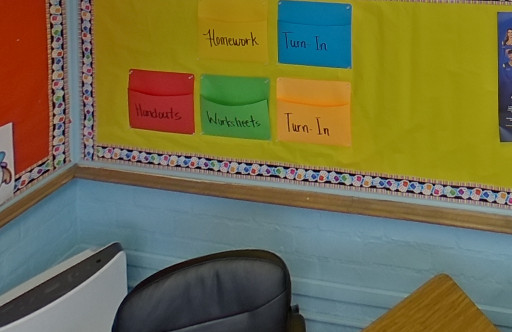 Homework
Turn In
Handouts
Worksheets
Turn-In